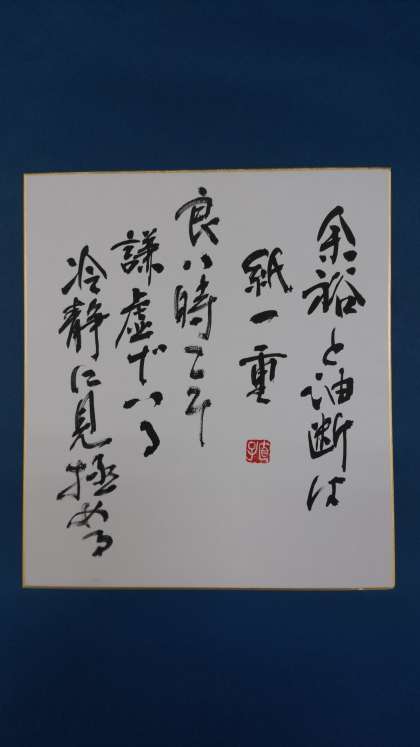 余裕と油断は
紙一重
良い時こそ
謙虚でいる
冷静に見極める